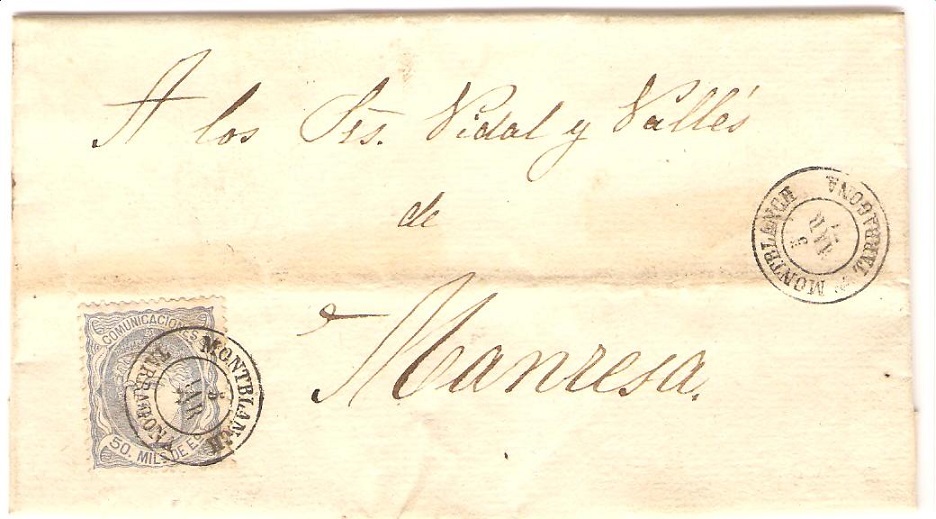 A los Srs. Vidal y Vallés
de
Manresa.
MONTBLANCH
TARRAGONA
COMUNICACIONES
50. MILS DE E
MONTBLANCH
TARRAGONA
5
MAR